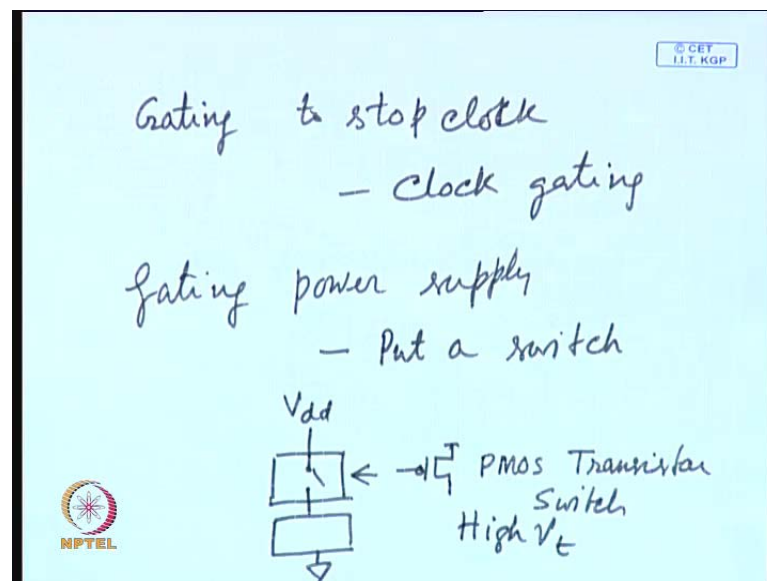 © CET
I.I.T. KGP
Gating to stop clock
— Clock gating
Gating power supply
— Put a switch
Vdd
PMOS Transistor
Switch
High Vt
NPTEL